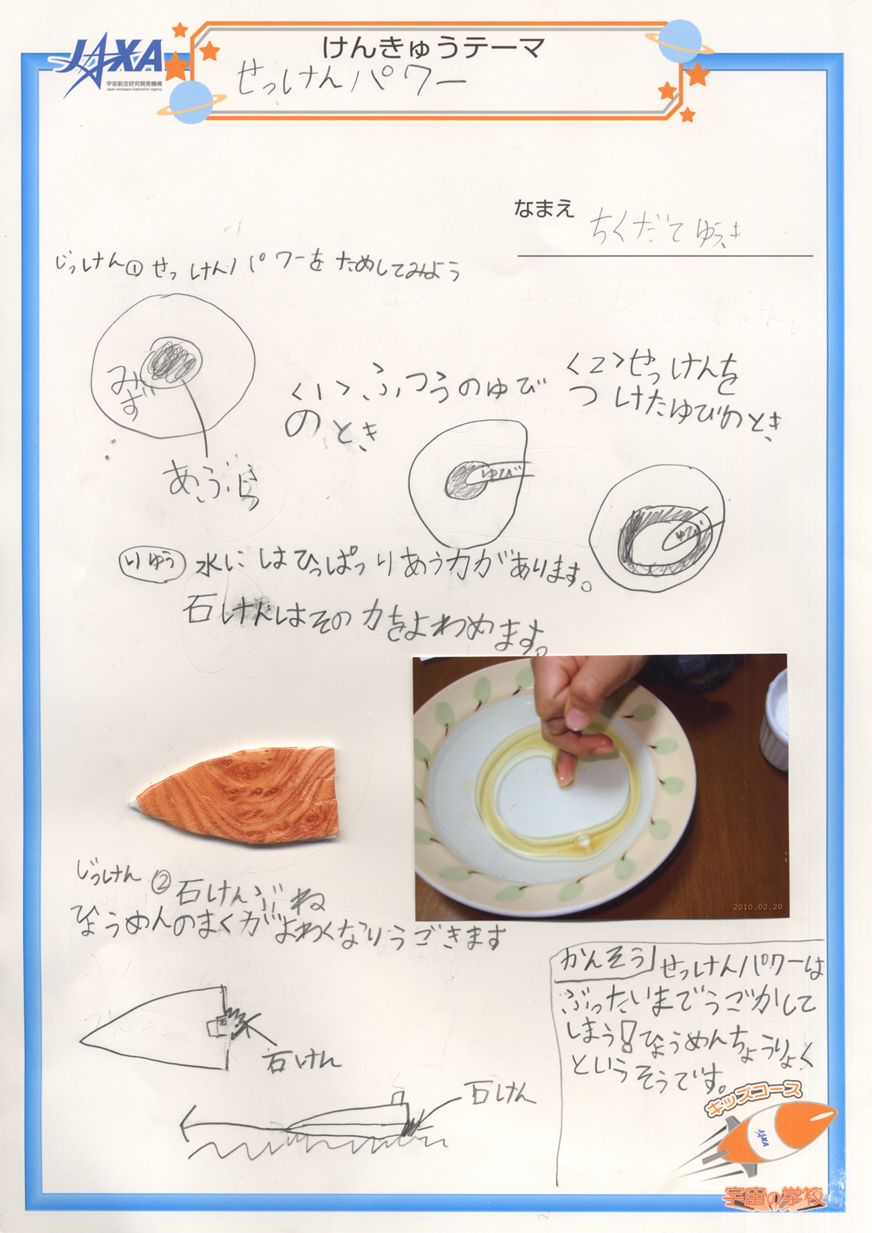 JAXA
宇宙航空研究開発機構
Japan Aerospace Exploration Agency
けんきゅうテーマ
せっけんパワー
なまえ
ちくだて ゆうき
じっけん① せっけんパワーをためしてみよう
みず
あぶら
<1> ふつうのゆび
のとき
ゆび
<2> せっけんを
つけたゆびのとき
ゆび
りゆう 水にはひっぱりあう力があります。
石けんはその力をよわめます。
2010.02.20
じっけん② 石けんぶね
ひょうめんのまくがよわくなりうごきます
石けん
石けん
かんそう せっけんパワーは
ぶったいまでうごかして
しまう!ひょうめんちょうりょく
というそうです。
キッズコース
JAXA
宇宙の学校